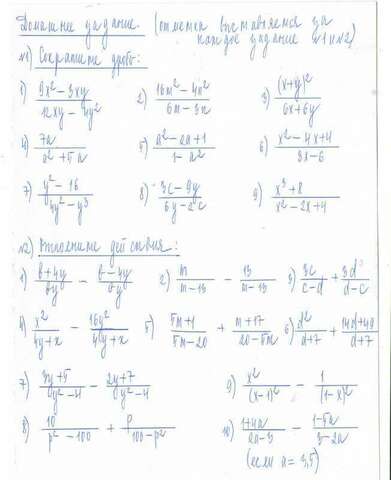 Домашнее задание. (отметки выставляется за каждое задание №1 и №2)
№1) Сократите дробь:
1) (9x² − 3xy)/(12xy − 4y²) 2) (16m² − 4n²)/(6m − 3n) 3) (x+y)²/(6x+6y)
4) 7a/(a² + 5a) 5) (a² − 2a + 1)/(1 − a²) 6) (x² − 4x + 4)/(3x − 6)
7) (y² − 16)/(4y² − y³) 8) (3c − 9y)/(6y − 2c) 9) (x³ + 8)/(x² − 2x + 4)
№2) Выполните действия:
1) (b+4y)/by − (b−4y)/by 2) m/(m−13) − 13/(m−13) 3) 3c/(c−d) + 3d/(d−c)
4) x²/(4y+x) − 16y²/(4y+x) 5) (5m+1)/(5m−20) + (m+17)/(20−5m) 6) d²/(d+7) + (14d+49)/(d+7)
7) (3y+5)/(y²−4) − (2y+7)/(y²−4) 9) x²/(x−1)² − 1/(1−x)²
8) 10/(p² − 100) + p/(100−p²) 10) (1+4a)/(2a−3) − (1−5a)/(3−2a)
(если a = 3,5)